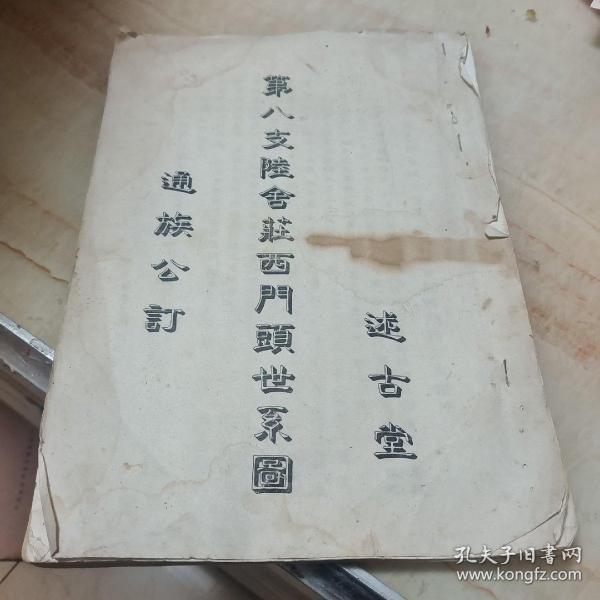 述古堂
第八支陸舍莊西門頭世系圖
通族公訂
孔夫子旧书网
www.kongfz.com